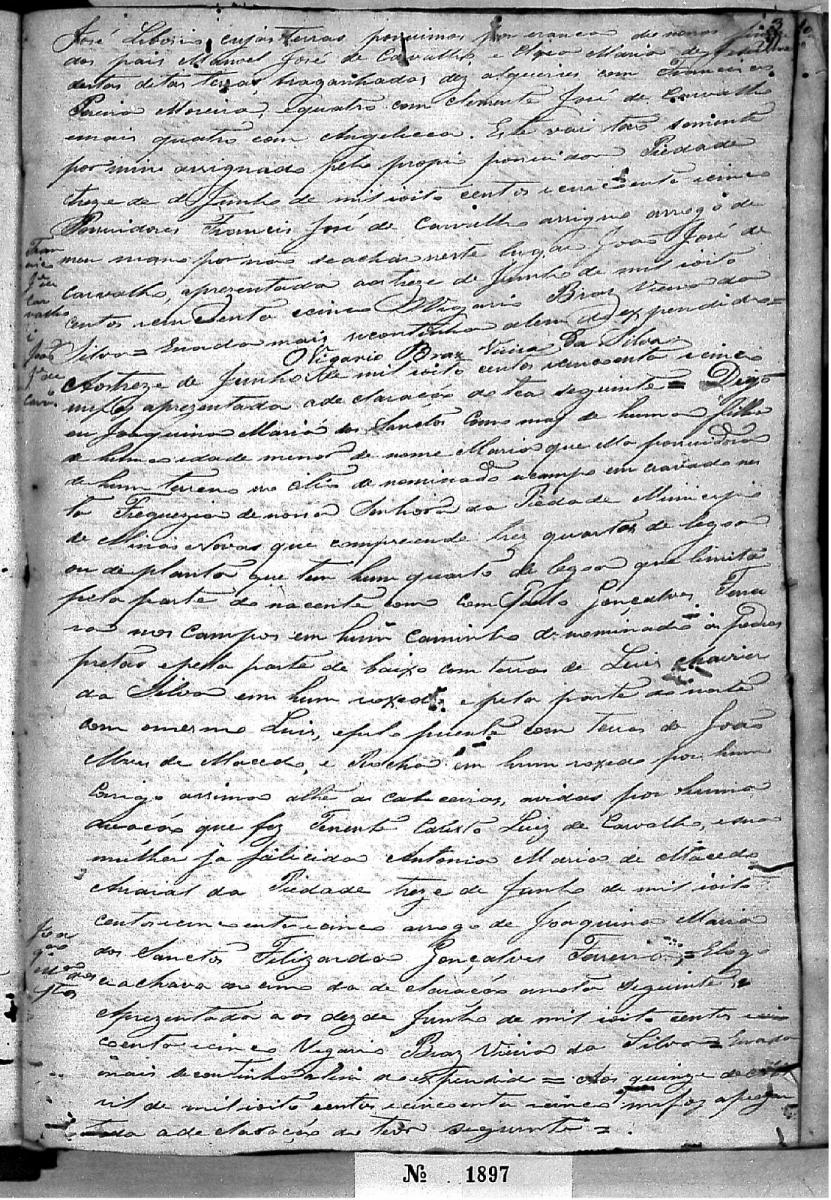 José Liborio cujas terras possuimos por erança de nossos
dos pais Manoel José de Carvalho e Maria de
destas detas terras braganhadas dez alqueires com Francisco
Pereira Moreira, e quatro com Clemente José de Carvalho
emais quatro com Angelica. Este vai tão somente
por mim assignado pelo propio possuidor Piedade
treze de Junho de mil oito centos e cincoenta e cinco
Possuidores Francisco José de Carvalho assigno arrogo de
meu mano por não se achar neste lugar João José de
Carvalho, apresentada aos treze de Junho de mil oito
centos e cincoenta e cinco O Vigario Braz Vieira da
Silva = Enada mais se continha alem do expendido =
O Vigario Braz Vieira Da Silva
Aos treze de Junho de mil oito centos e cincoenta e cinco
me foi aprezentada a declaração do teor seguinte = Digo
eu Joaquina Maria dos Sanctos como mai de huma filha
de hum a idade menor de nome Maria que esta possuidora
de hum terreno no denominado campo em cravado nes
ta Freguezia de nossa Senhora da Piedade Municipio
de Minas Novas que comprehende trez quartos de legoa
ou de planta que tem hum quarto de legoa que limita
pela parte do nacente com com Gonçalves Ferrei
ra nos campos em hum caminho denominado as pedras
pretas e pela parte de baixo com terras de Luis Xavier
da Silva em hum roxedo, e pela parte do norte
com omesmo Luis, e pelo puente com terras de João
Alves de Macedo, e Rocha em hum roxedo por hum
Corrigo assima athé as cabeceiras, avidas por huma
duação que fez Tenente Calisto Luiz de Carvalho, e sua
mulher ja falicida Antonia Maria de Macedo
Arraial da Piedade treze de Junho de mil oito
centos e cincoenta e cinco arrogo de Joaquina Maria
dos Sanctos Filizardo Gonçalves Ferreira = Elogo
se achava acima da declaração a nota seguinte =
Aprezentada a os dez de Junho de mil oito centos e cin
coenta e cinco Vigario Braz Vieira da Silva = Enada
mais se continha alem do expendido = Aos quinze de Ab
ril de mil oito centos e cincoenta e cinco me foi aprezen
tada a declaração do teor seguinte = .
Fran
cisco
Je de
Car
valho
i
João
Je de
Carvo
Joa
qina
dos
Stos
Nº 1897